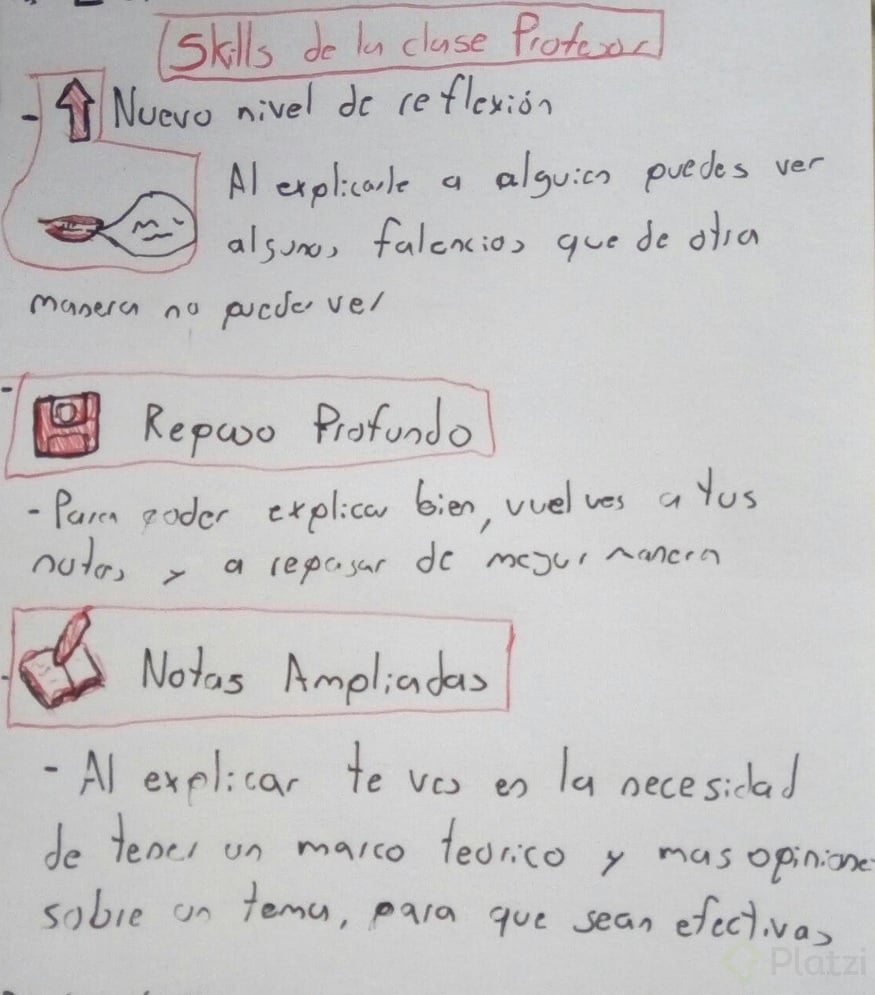 Skills de la clase Profesor
- Nuevo nivel de reflexión
Al explicarle a alguien puedes ver
algunas falencias que de otra
manera no puede ver
- Repaso Profundo
- Para poder explicar bien, vuelves a tus
notas y a repasar de mejor manera
- Notas Ampliadas
- Al explicar te ves en la necesidad
de tener un marco teorico y mas opinione
sobre un tema, para que sean efectivas
Platzi